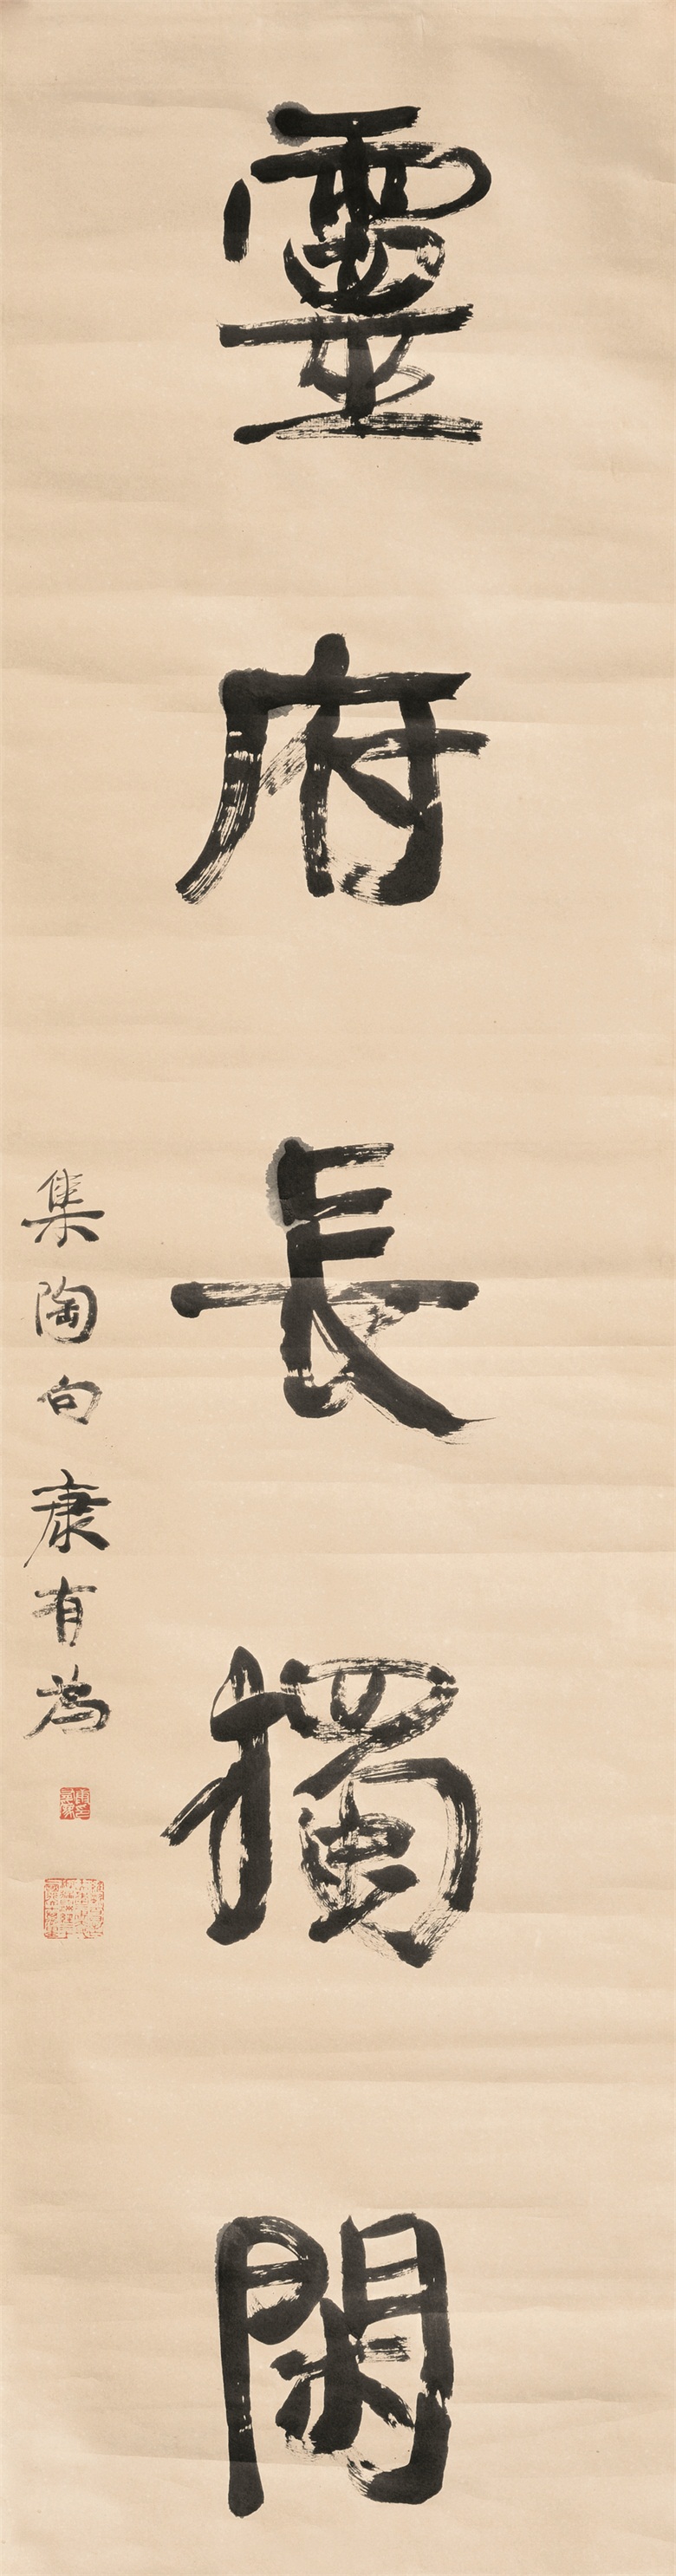 靈府長獨閑
集陶句康有為